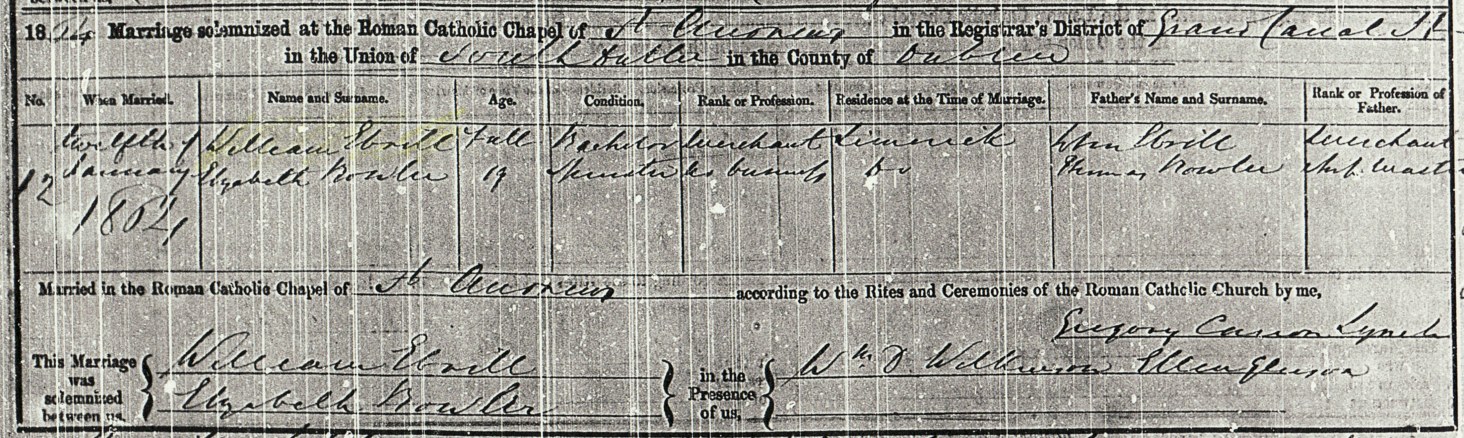 1864 Marriage solemnized at the Roman Catholic Chapel of St Andrews in the Registrar's District of Grand Canal St
in the Union of South Dublin in the County of Dublin
No. When Married. Name and Surname. Age. Condition. Rank or Profession. Residence at the Time of Marriage. Father's Name and Surname. Rank or Profession of Father.
twelfth of William Ebrill Full Bachelor Merchant Limerick John Ebrill Merchant
12 January Elizabeth Nowlan 19 Spinster no business Do Thomas Nowlan Ship Master
1864
Married in the Roman Catholic Chapel of St Andrews according to the Rites and Ceremonies of the Roman Catholic Church by me,
Gregory Lynch
This Marriage was solemnized between us, William Ebrill in the Presence of us, Wm D. Wilkinson Ellen Gleeson
Elizabeth Nowlan